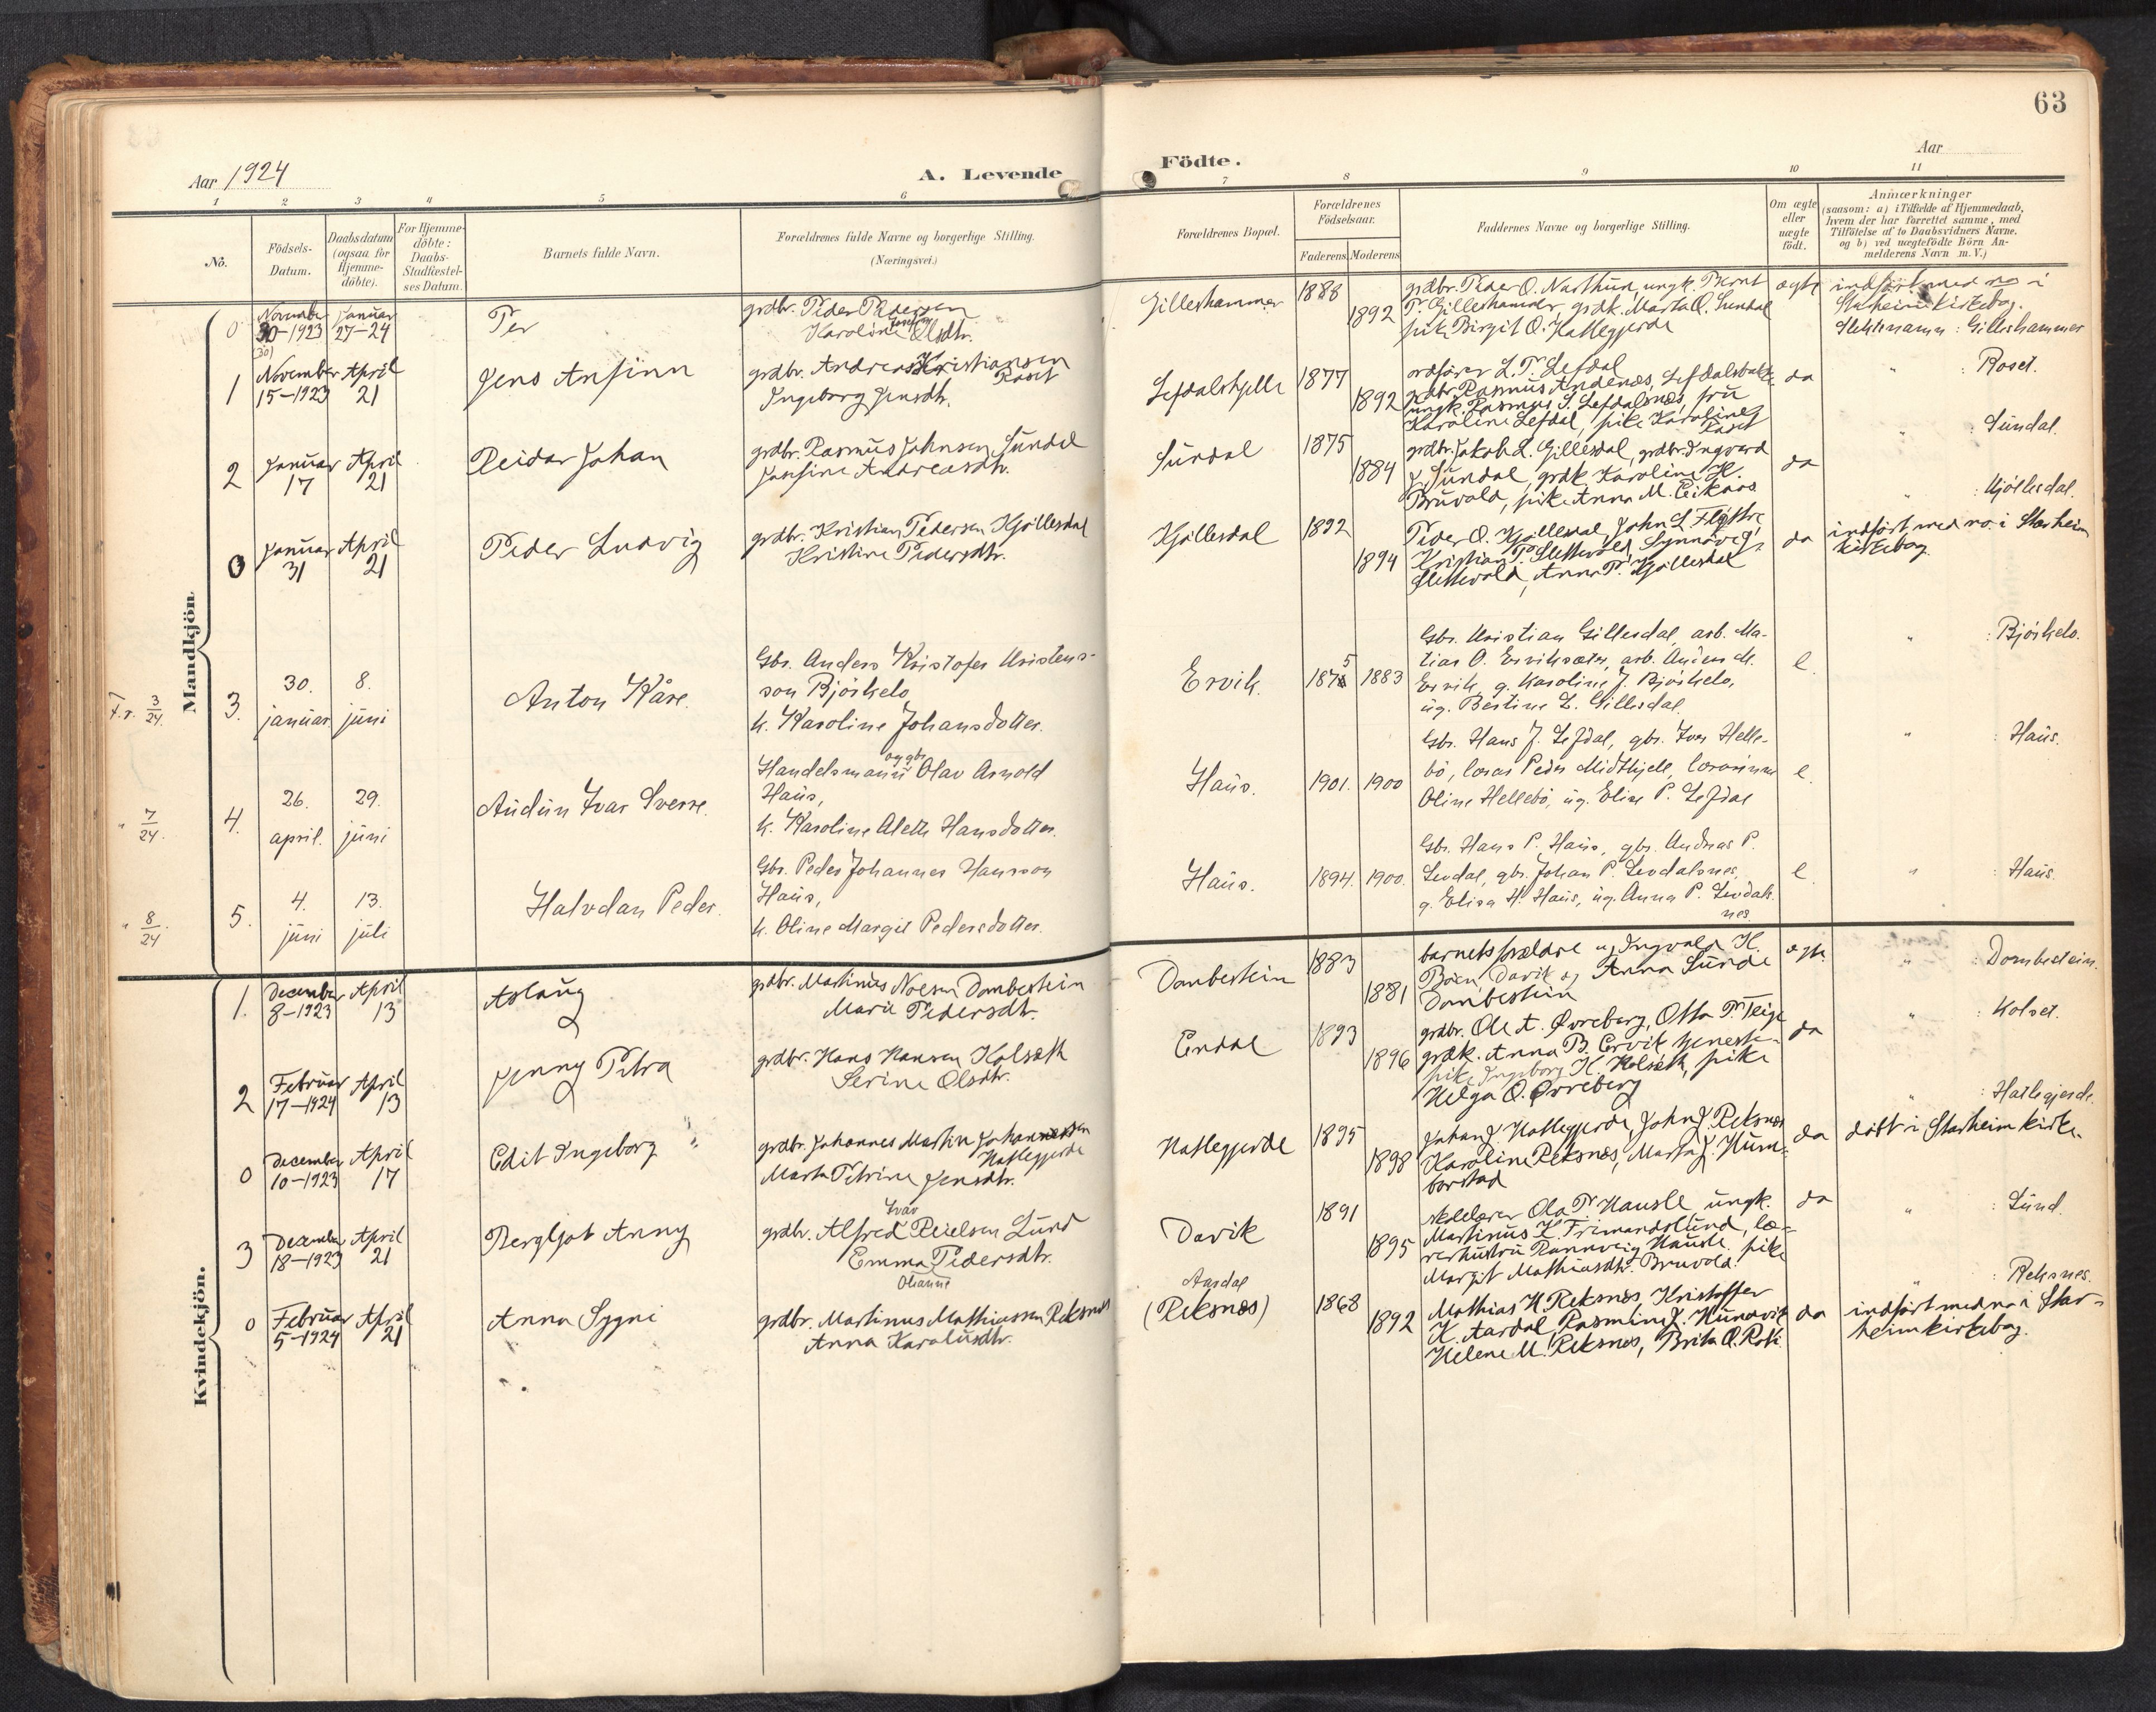 63
Aar 1924
A. Levende
Födte.
Aar
1 2 3 4 5 6 7 8 9 10 11
No.
Födsels-
Datum.
Daabsdatum
(ogsaa for
Hjemme-
döbte).
For Hjemme-
döbte:
Daabs-
Stadfæstel-
ses Datum.
Barnets fulde Navn.
Forældrenes fulde Navne og borgerlige Stilling.
(Næringsvei.)
Forældrenes Bopæl.
Forældrenes
Födselsaar.
Faderens. Moderens.
Faddernes Navne og borgerlige Stilling.
Om ægte
eller
uægte
födt.
Anmærkninger
(saasom: a) i Tilfælde af Hjemmedaab,
hvem der har forrettet samme, med
Tilföielse af to Daabsvidners Navne.
og b) ved uægtefödte Börn An-
melderens Navn m. V.)
Mandkjön.
0
November
30-1923
(30)
Januar
27-24
Per
grdbr. Peder Pedersen
Karoline Olsdtr.
Gilleshammer
1888
1892
grdbr. Peder O. Narthun, ungk. Bernt
P. Gilleshammer, grdk. Marta O. Sundal
pike Birgit O. Hatlegjerde
ægte
indført med no i
Starheim kirkebog.
Slektsnamn: Gilleshammer
1
November
15-1923
April
21
Jens Anfinn
grdbr. Andreas Kristiansen
Raset
Ingeborg Jensdtr.
Lefdalskjelle
1877
1892
ordfører L. P. Lefdal
grdbr. Rasmus Andenæs, Lefdalsbakke
ungk. Rasmus S. Lefdalsnes, fru
Karoline Lefdal, pike Karoline J
Raset
da
" : Roset.
2
Januar
17
April
21
Reidar Johan
grdbr. Rasmus Johnsen Sundal
Josefine Andreasdtr.
Sundal
1875
1884
grdbr. Jakob L. Gillesdal, grdbr. Ingvard
J. Sundal, grdk. Karoline H.
Bruvold, pike Anna M. Eikaas
da
" : Sundal.
0
Januar
31
April
21
Peder Ludvig
grdbr. Kristian Pedersen Kjøllesdal
Kristine Pedersdtr.
Kjøllesdal
1892
1894
Peder O. Kjøllesdal, John L. Fløtre
Kristian P. Slettevold, Synnøveg
Slettevold, Anna P. Kjøllesdal
da
" : Kjöllesdal.
indført med no i Starheim
kirkebog.
f.r. 3/24.
3.
30.
januar
8.
juni
Anton Kåre.
Gbr. Anders Kristofer Kristens-
son Bjórkelo
k. Karoline Johansdotter.
Ervik.
1875
1883
Gbr. Kristian Gillesdal, arb. Ma-
tias O. Erviksæter, arb. Anders M.
Ervik, g. Karoline J. Bjórkelo,
ug. Bertine L. Gillesdal.
e.
" : Bjórkelo.
" 7/24.
4.
26.
april.
29.
juni
Audun Ivar Sverre.
Handelsmann og gbr. Olav Arnold
Haus,
k. Karoline Aleth Hansdotter.
Haus.
1901.
1900
Gbr. Hans J. Lefdal, gbr. Iver Helle-
bö, lærar Peder Midthjell, lærarinna
Oline Hellebö, ug. Elise P. Lefdal
e.
" : Haus.
" 8/24.
5.
4.
juni
13.
juli
Halvdan Peder.
Gbr. Peder Johannes Hansson
Haus,
k. Oline Margit Pedersdotter.
Haus.
1894.
1900.
Gbr. Hans P. Haus, gbr. Andreas P.
Levdal, gbr. Johan P. Levdalsnes,
g. Elisa H. Haus, ug. Anna P. Levdals-
nes.
e.
" : Haus.
Kvindekjön.
1.
December
8-1923
April
13
Aslaug
grdbr. Martinus Noesen Dombestein
Marie Pedersdtr.
Dombestein
1883
1881
barnets forældre u, Ingvald H.
Böen, Davik og Anna Sunde
Dombestein
ægte
" : Dombestein.
2
Februar
17-1924
April
13
Jenny Petra
grdbr. Hans Hansen Kolseth
Serine Olsdtr.
Endal
1893
1896
grdbr. Ole A. Øvreberg, Otto P. Teige
grdk. Anna B. Ervik, tjeneste-
pike Ingeborg H. Kolseth, pike
Helga O. Øvreberg
da
" : Kolset.
0
December
10-1923
April
17
Edit Ingeborg
grdbr. Johannes Martin Johannessen
Hatlegjerde
Marta Petrine Jensdtr.
Hatlegjerde
1895
1898
Johan J. Hatlegjerde, John J. Reksnes
Karoline Reksnes, Marta J. Hum-
borstad
da
" : Hatlegjerde.
døbt i Starheim kirke.
3
December
18-1923
April
21
Bergljot Anny
grdbr. Alfred Ivar Reielsen Lund
Emma Pedersdtr.
Davik
1891
1895
skolelærer Ola P. Hausle, ungk.
Martinus K. Frimandslund, læ-
rerhustru Rannveig Hausle. pike
Margit Mathiasdtr. Bruvold.
da
" : Lund.
0
Februar
5-1924
April
21
Anna Sygni
grdbr. Martinus Mathiassen Reksnes
Anna Karolusdtr.
Aardal
(Reksnæs)
1868
1892
Mathias H. Reksnes, Kristoffer
K. Aardal, Rasmine J. Hundvik
Helene M. Reksnes, Brita O. Roti
da
" : Reksnes.
indført med no i Star-
heim kirkebog.